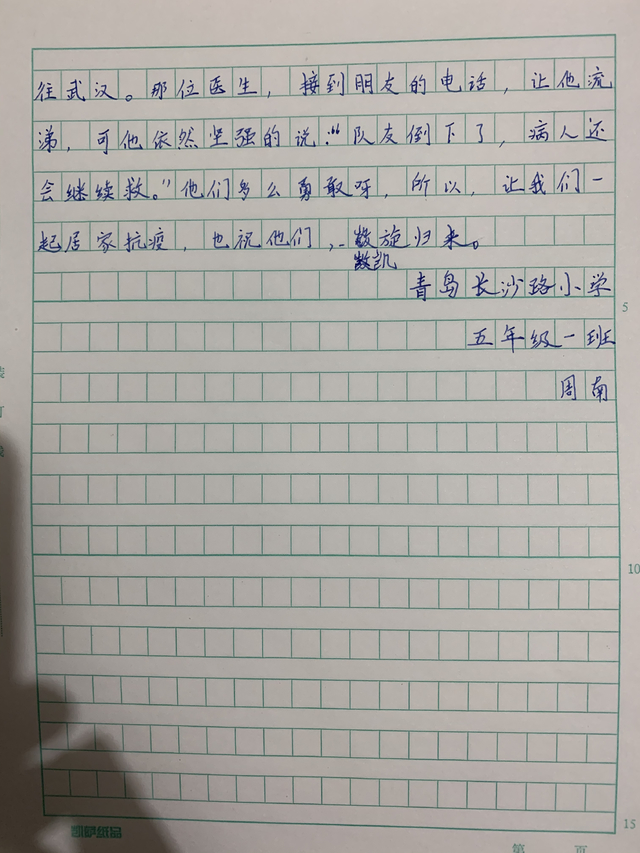 往武汉。那位医生，接到朋友的电话，让他流
涕，可他依然坚强的说：“队友倒下了，病人还
会继续救。”他们多么勇敢呀，所以，让我们一
起居家抗疫，也祝他们，旋归来。
凯
青岛长沙路小学
5
五年级一班
周南
10
15
凯萨纸品
第 页